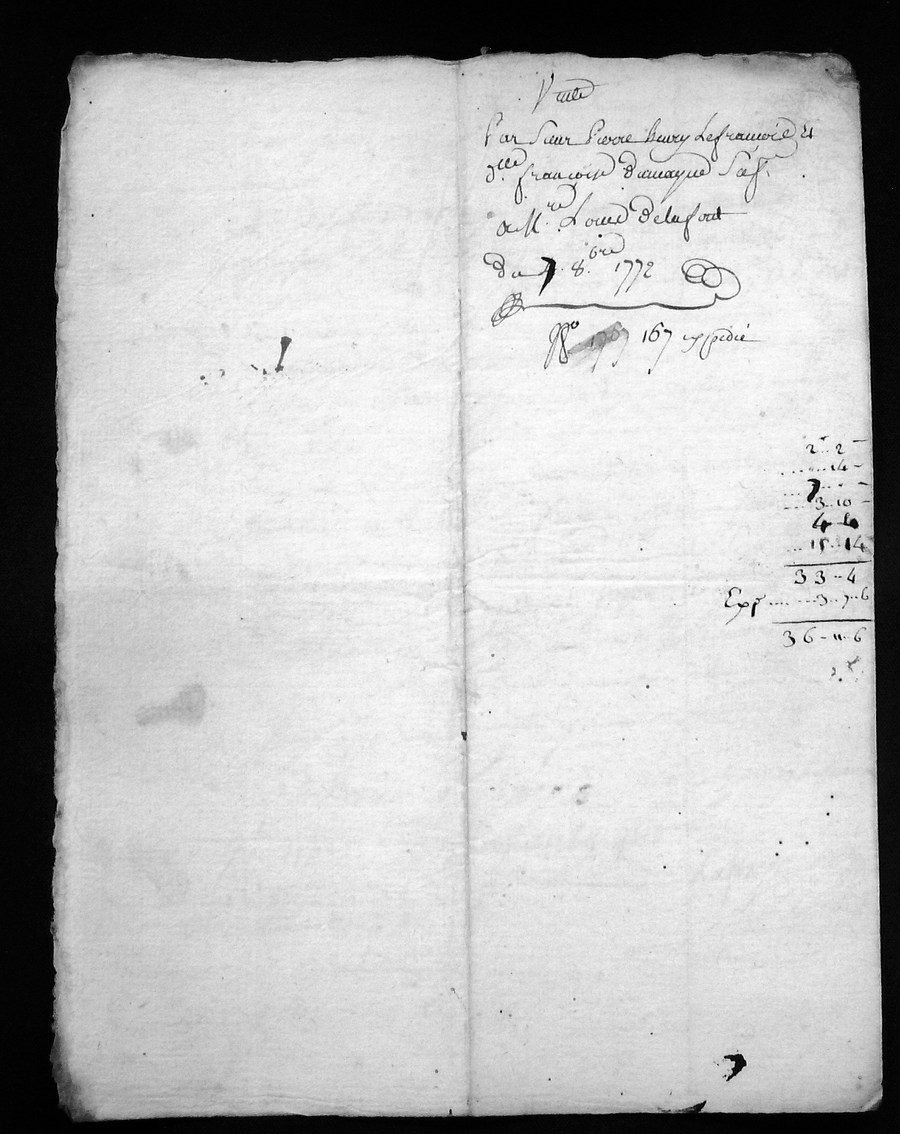 Vente
Par Sieur Pierre henry Lefrancois et
d.lle francoise Dumayne Sa f.
a M.re Louis Delafont
du 7 8.bre 1772
N.o 167 expedié
2..2
14
7
3..10
4 4
15..14
33..4
Exp. 3..7..6
36..11..6